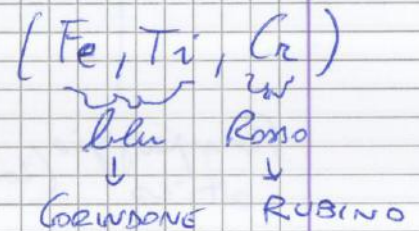 (Fe, Ti, Cr)
blu Rosso
↓ ↓
CORINDONE RUBINO